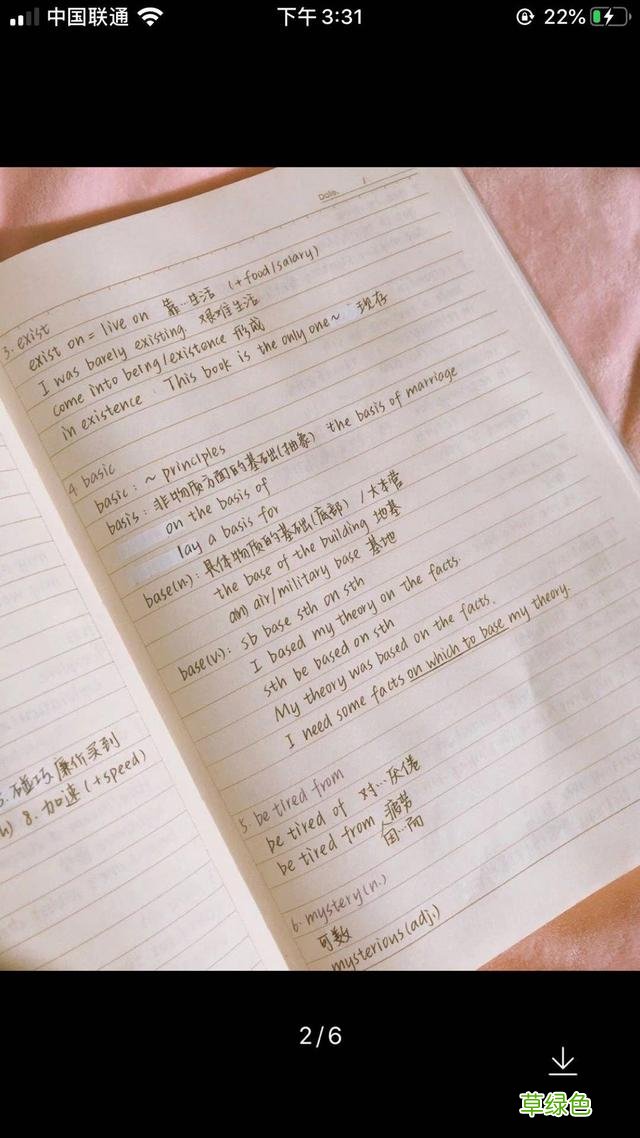 中国联通
下午3:31
22%
Date.
3. exist
exist on = live on 靠…生活 (+food/salary)
I was barely existing. 艰难生活
come into being/existence 形成
in existence : This book is the only one~ 现存
4 basic
basic : ~ principles
basis : 非物质方面的基础(抽象) the basis of marriage
on the basis of
lay a basis for
base(n) : 具体物质的基础(底部) / 大本营
the base of the building 地基
an) air/military base 基地
base(v) : sb base sth on sth
I based my theory on the facts.
sth be based on sth
My theory was based on the facts.
I need some facts on which to base my theory.
5 be tired from
be tired of 对…厌倦
be tired from 疲劳
因…而
6. mystery(n.)
可数
mysterious(adj.)
碰巧, 廉价买到
8. 加速 (+speed)
2/6
草绿色